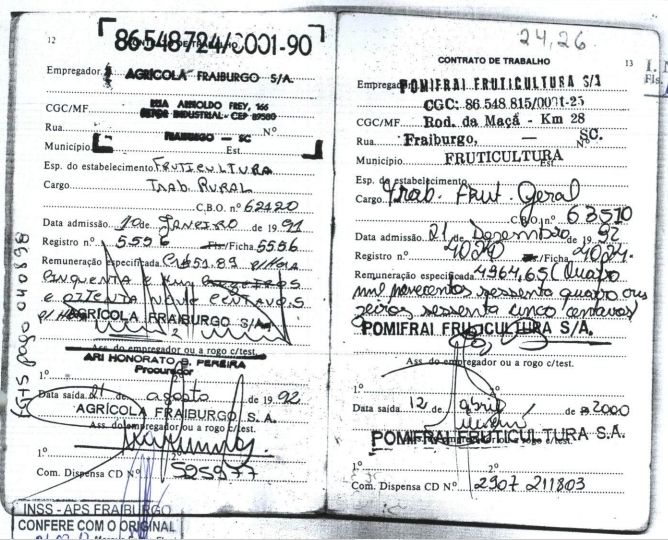 12
CONTRATO DE TRABALHO
86.548.724/0001-90
Empregador AGRÍCOLA FRAIBURGO S/A.
CGC/MF RUA ARNOLDO FREY, 166
SETOR INDUSTRIAL - CEP 89580
Rua Nº
FRAIBURGO — SC
Município Est.
Esp. do estabelecimento FRUTICULTURA
Cargo TRAB. RURAL
C.B.O. nº 62420
Data admissão 10 de JANEIRO de 19 91
Registro nº 5556 Fls./Ficha 5556
Remuneração especificada Cr$ 51.89 P/HORA
CINQUENTA E HUM CRUZEIROS
E OITENTA NOVE CENTAVOS
P/HORA
AGRÍCOLA FRAIBURGO S/A.
Ass. do empregador ou a rogo c/test.
ARI HONORATO B. PEREIRA
Procurador
1º
Data saída 21 de agosto de 19 92
AGRÍCOLA FRAIBURGO S. A.
Ass. do empregador ou a rogo c/test.
1º 2º
Com. Dispensa CD Nº 525977
FGTS pago 040898
INSS - APS FRAIBURGO
CONFERE COM O ORIGINAL
24,26
13
CONTRATO DE TRABALHO
Empregador POMIFRAI FRUTICULTURA S/A
CGC: 86.548.815/0001-25
CGC/MF Rod. da Maçã - Km 28
Rua Fraiburgo, — SC. Nº
Município FRUTICULTURA Est.
Esp. do estabelecimento
Cargo Trab. Frut. Geral
C.B.O. nº 63510
Data admissão 21 de Dezembro de 19 92
Registro nº 4020 Fls./Ficha
Remuneração especificada 4964,65 (Quatro
mil novecentos sessenta quatro cru
zeiros sessenta cinco centavos)
POMIFRAI FRUTICULTURA S/A.
Ass. do empregador ou a rogo c/test.
1º 2º
Data saída 12 de abril de 2000
POMIFRAI FRUTICULTURA S.A.
Ass. do empregador ou a rogo c/test.
1º 2º
Com. Dispensa CD Nº 2907 211803
I. N
Fls.